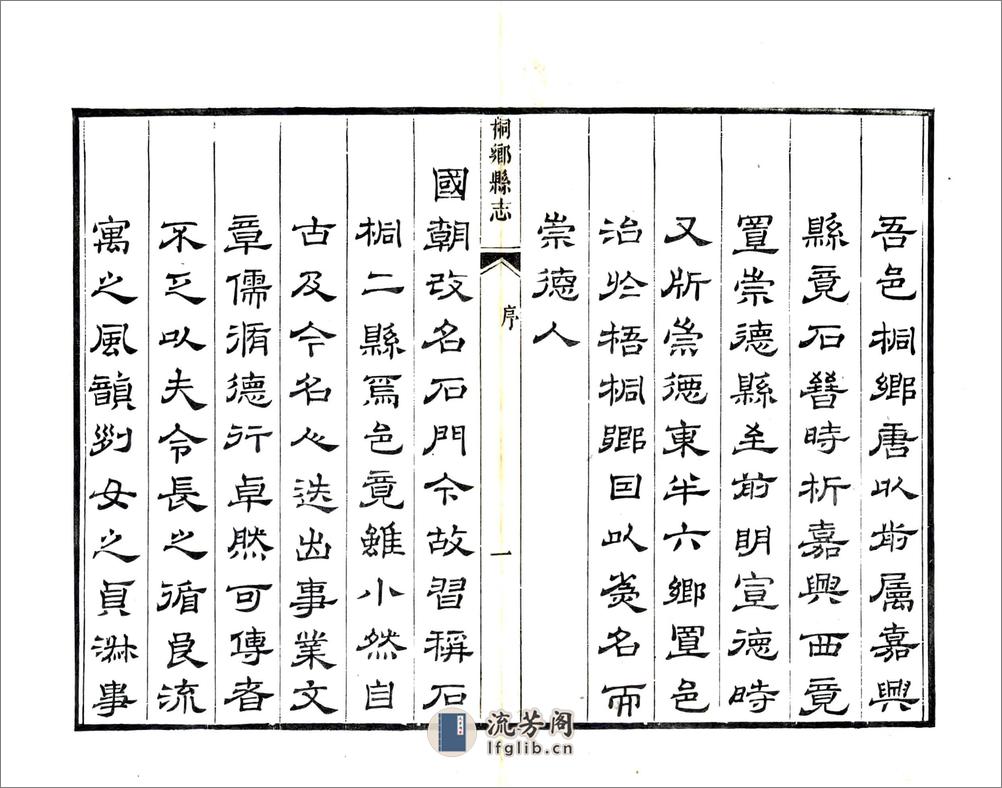 吾邑桐鄉唐以前屬嘉興
縣竟石晉時析嘉興西竟
置崇德縣至前明宣德時
又析崇德東半六鄉置邑
治於梧桐鄉因以爲名而
崇德入
桐鄉縣志 序 一
國朝改名石門今故習稱石
桐二縣焉邑竟雖小然自
古及今名人迭出事業文
章儒脩德行卓然可傳者
不乏以夫令長之循良流
寓之風韻列女之貞淑事
流芳阁
lfglib.cn